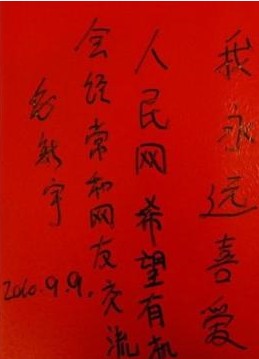 我永远喜爱
人民网希望有机
会经常和网友交流
新宇
2010.9.9.